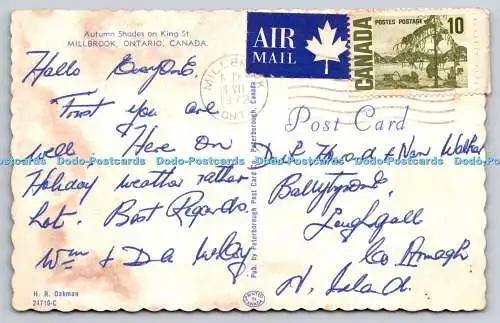 Autumn Shades on King St.
MILLBROOK, ONTARIO, CANADA.
Hello Everyone
Trust you are
well. Here on
Holiday weather rather
hot. Best Regards
Wm & D A
H. R. Oakman
24710-C
Pub. by Peterborough Post Card Co., Peterborough, Canada
AIR
MAIL
POSTES POSTAGE
10
CANADA
MILLBROOK
1972
ONT
Post Card
&
Co Armagh
N. Ireland
Dodo-Postcards Dodo-Postcards Dodo-Postcards Dodo-Postcards Dodo-Postcards